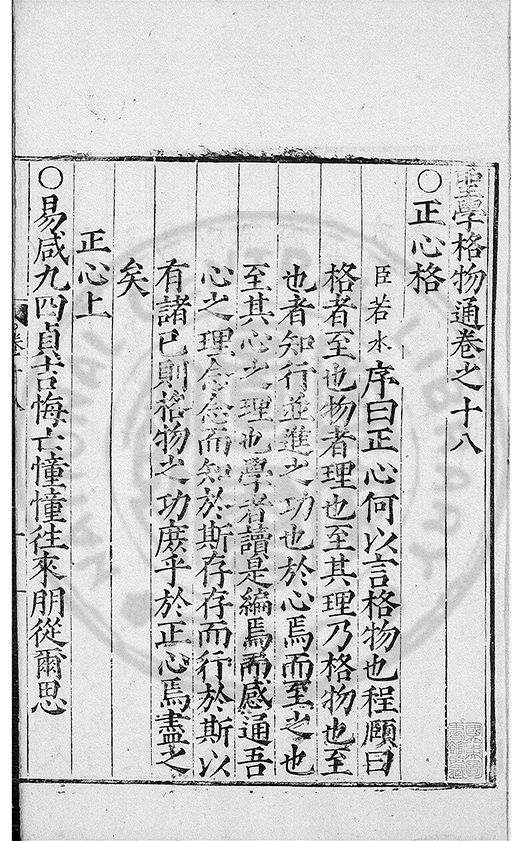 聖學格物通卷之十八
○正心格
臣若水序曰正心何以言格物也程頤曰
格者至也物者理也至其理乃格物也至
也者知行並進之功也於心焉而至之也
至其心之理也學者讀是編焉而感通吾
心之理念念而知於斯存存而行於斯以
有諸已則格物之功庶乎於正心焉盡之
矣
正心上
○易咸九四貞吉悔亡憧憧往來朋從爾思